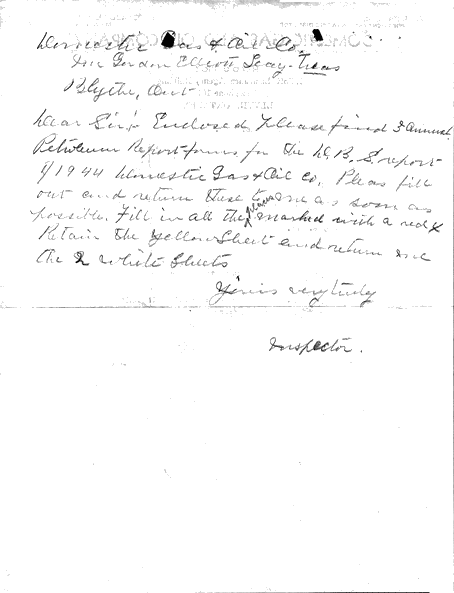 Domestic Gas & Oil Co.
Mr Gordon Elliott Secy-Treas
Blyth, Ont
Dear Sir:- Enclosed Please find 3 Annual
Petroleum Report forms for the D.B.S report
of 1944 Domestic Gas & Oil Co. Pleas fill
out and return these to me as soon as
possible. Fill in all the places marked with a red X
Retain the yellow Sheet and return me
the 2 white Sheets
Yours very truly
Inspector.